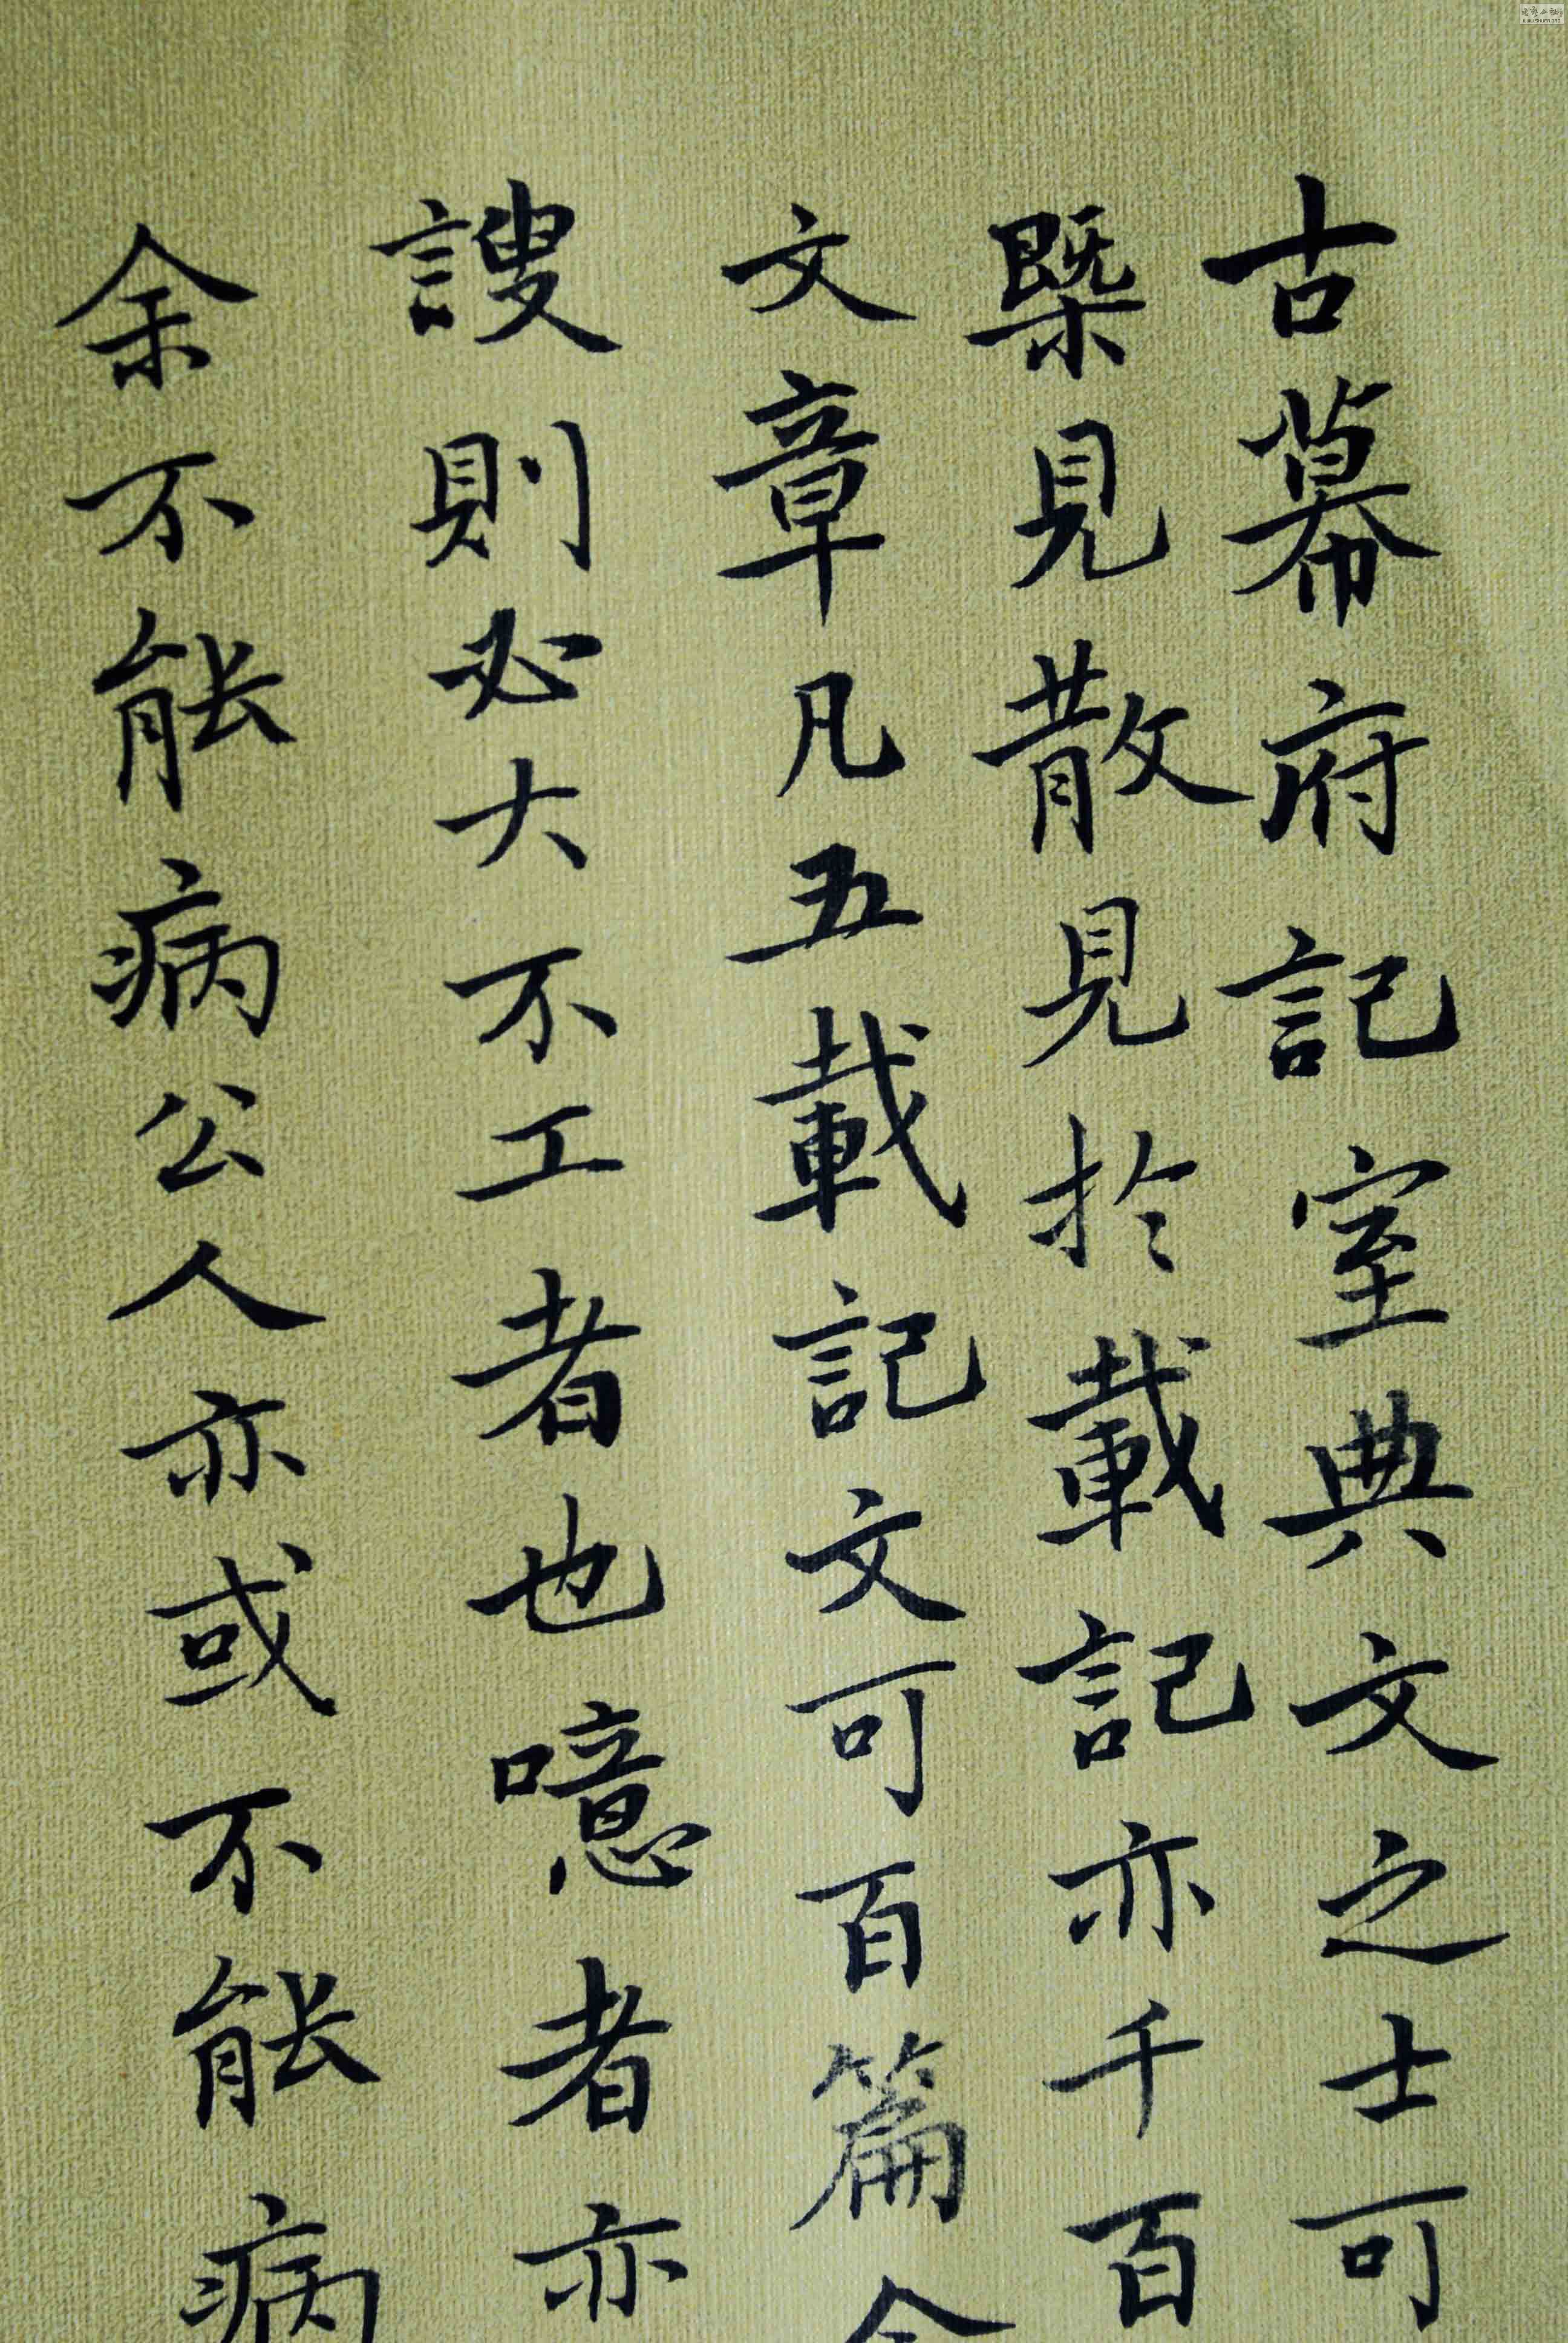 古幕府記室典文之士可
槩見散見於載記亦千百
文章凡五載記文可百篇
謏則必大不工者也噫者亦
余不能病公人亦或不能病